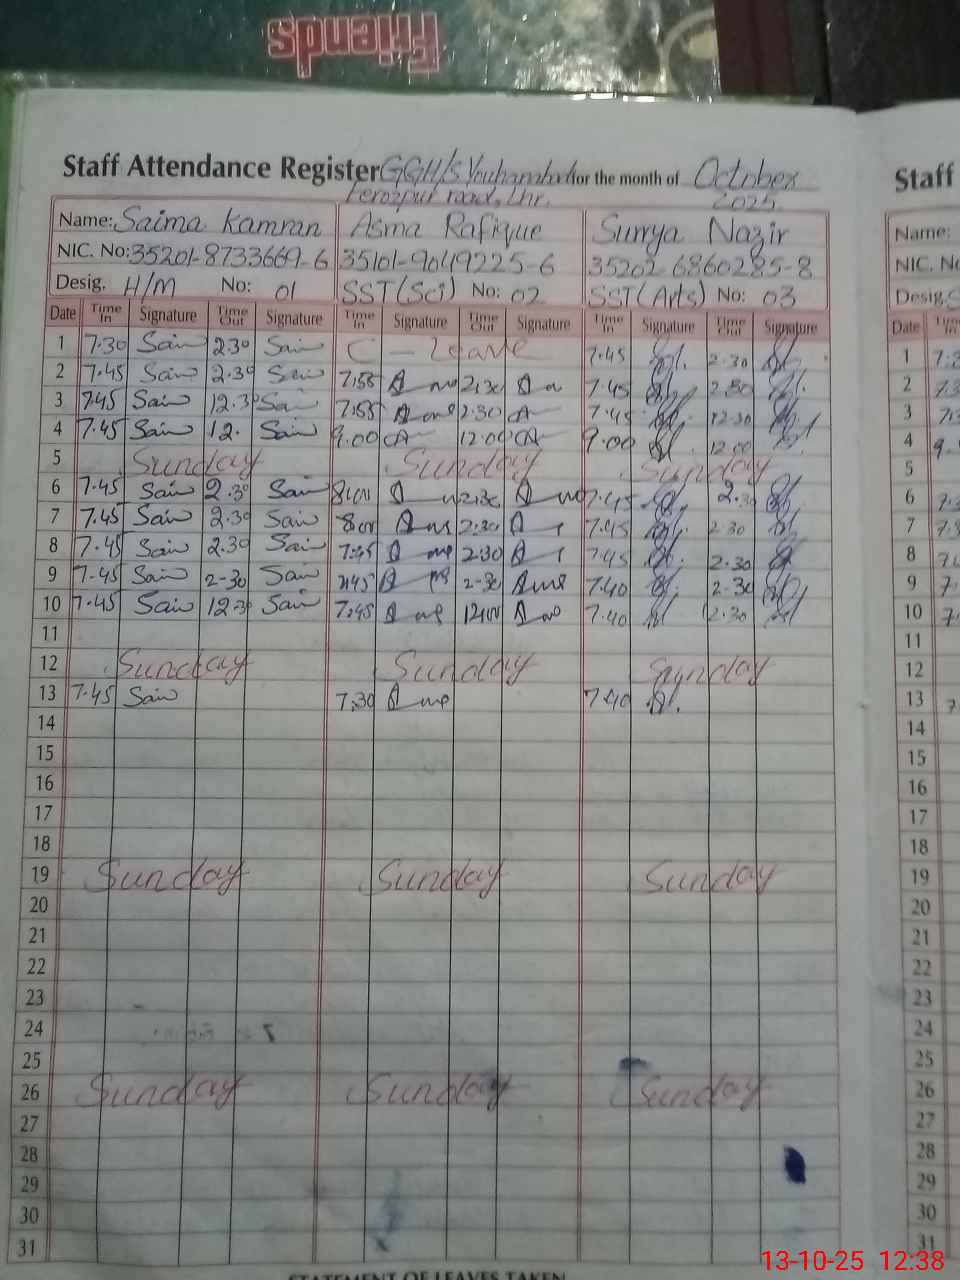 Friends
Staff Attendance Register GGH/S Youhanabad for the month of October
Ferozpur road, Lhr. 2025.
Staff
Name: Saima Kamran Asma Rafique Surrya Nazir
Name:
NIC. No: 35201-8733669-6 35101-9049225-6 35202-6860285-8
NIC. No
Desig. H/M No: 01 SST(Sci) No: 02 SST(Arts) No: 03
Desig.
Date Time In Signature Time Out Signature Time In Signature Time Out Signature Time In Signature Time Out Signature
Date
1 7.30 Saim 2.30 Saim C - Leave 7.45 2.30
2 7.45 Saim 2.30 Saim 7.55 2.30 7.45 2.30
3 7.45 Saim 12.30 Saim 7.55 2.30 7.45 12.30
4 7.45 Saim 12. Saim 9.00 12.00 9.00 12.00
5 Sunday Sunday Sunday
6 7.45 Saim 2.30 Saim 2.30 7.45 2.30
7 7.45 Saim 2.30 Saim 2.30 7.45 2.30
8 7.45 Saim 2.30 Saim 7.45 2.30 7.45 2.30
9 7.45 Saim 2-30 Saim 7.45 2-30 7.40 2-30
10 7.45 Saim 12.30 Saim 7.45 12.00 7.40 12.30
11
12 Sunday Sunday Sunday
13 7.45 Saim 7.30 7.40
14
15
16
17
18
19 Sunday Sunday Sunday
20
21
22
23
24
25
26 Sunday Sunday Sunday
27
28
29
30
31
1
2
3
4
5
6
7
8
9
10
11
12
13
14
15
16
17
18
19
20
21
22
23
24
25
26
27
28
29
30
31
STATEMENT OF LEAVES TAKEN
13-10-25 12:38